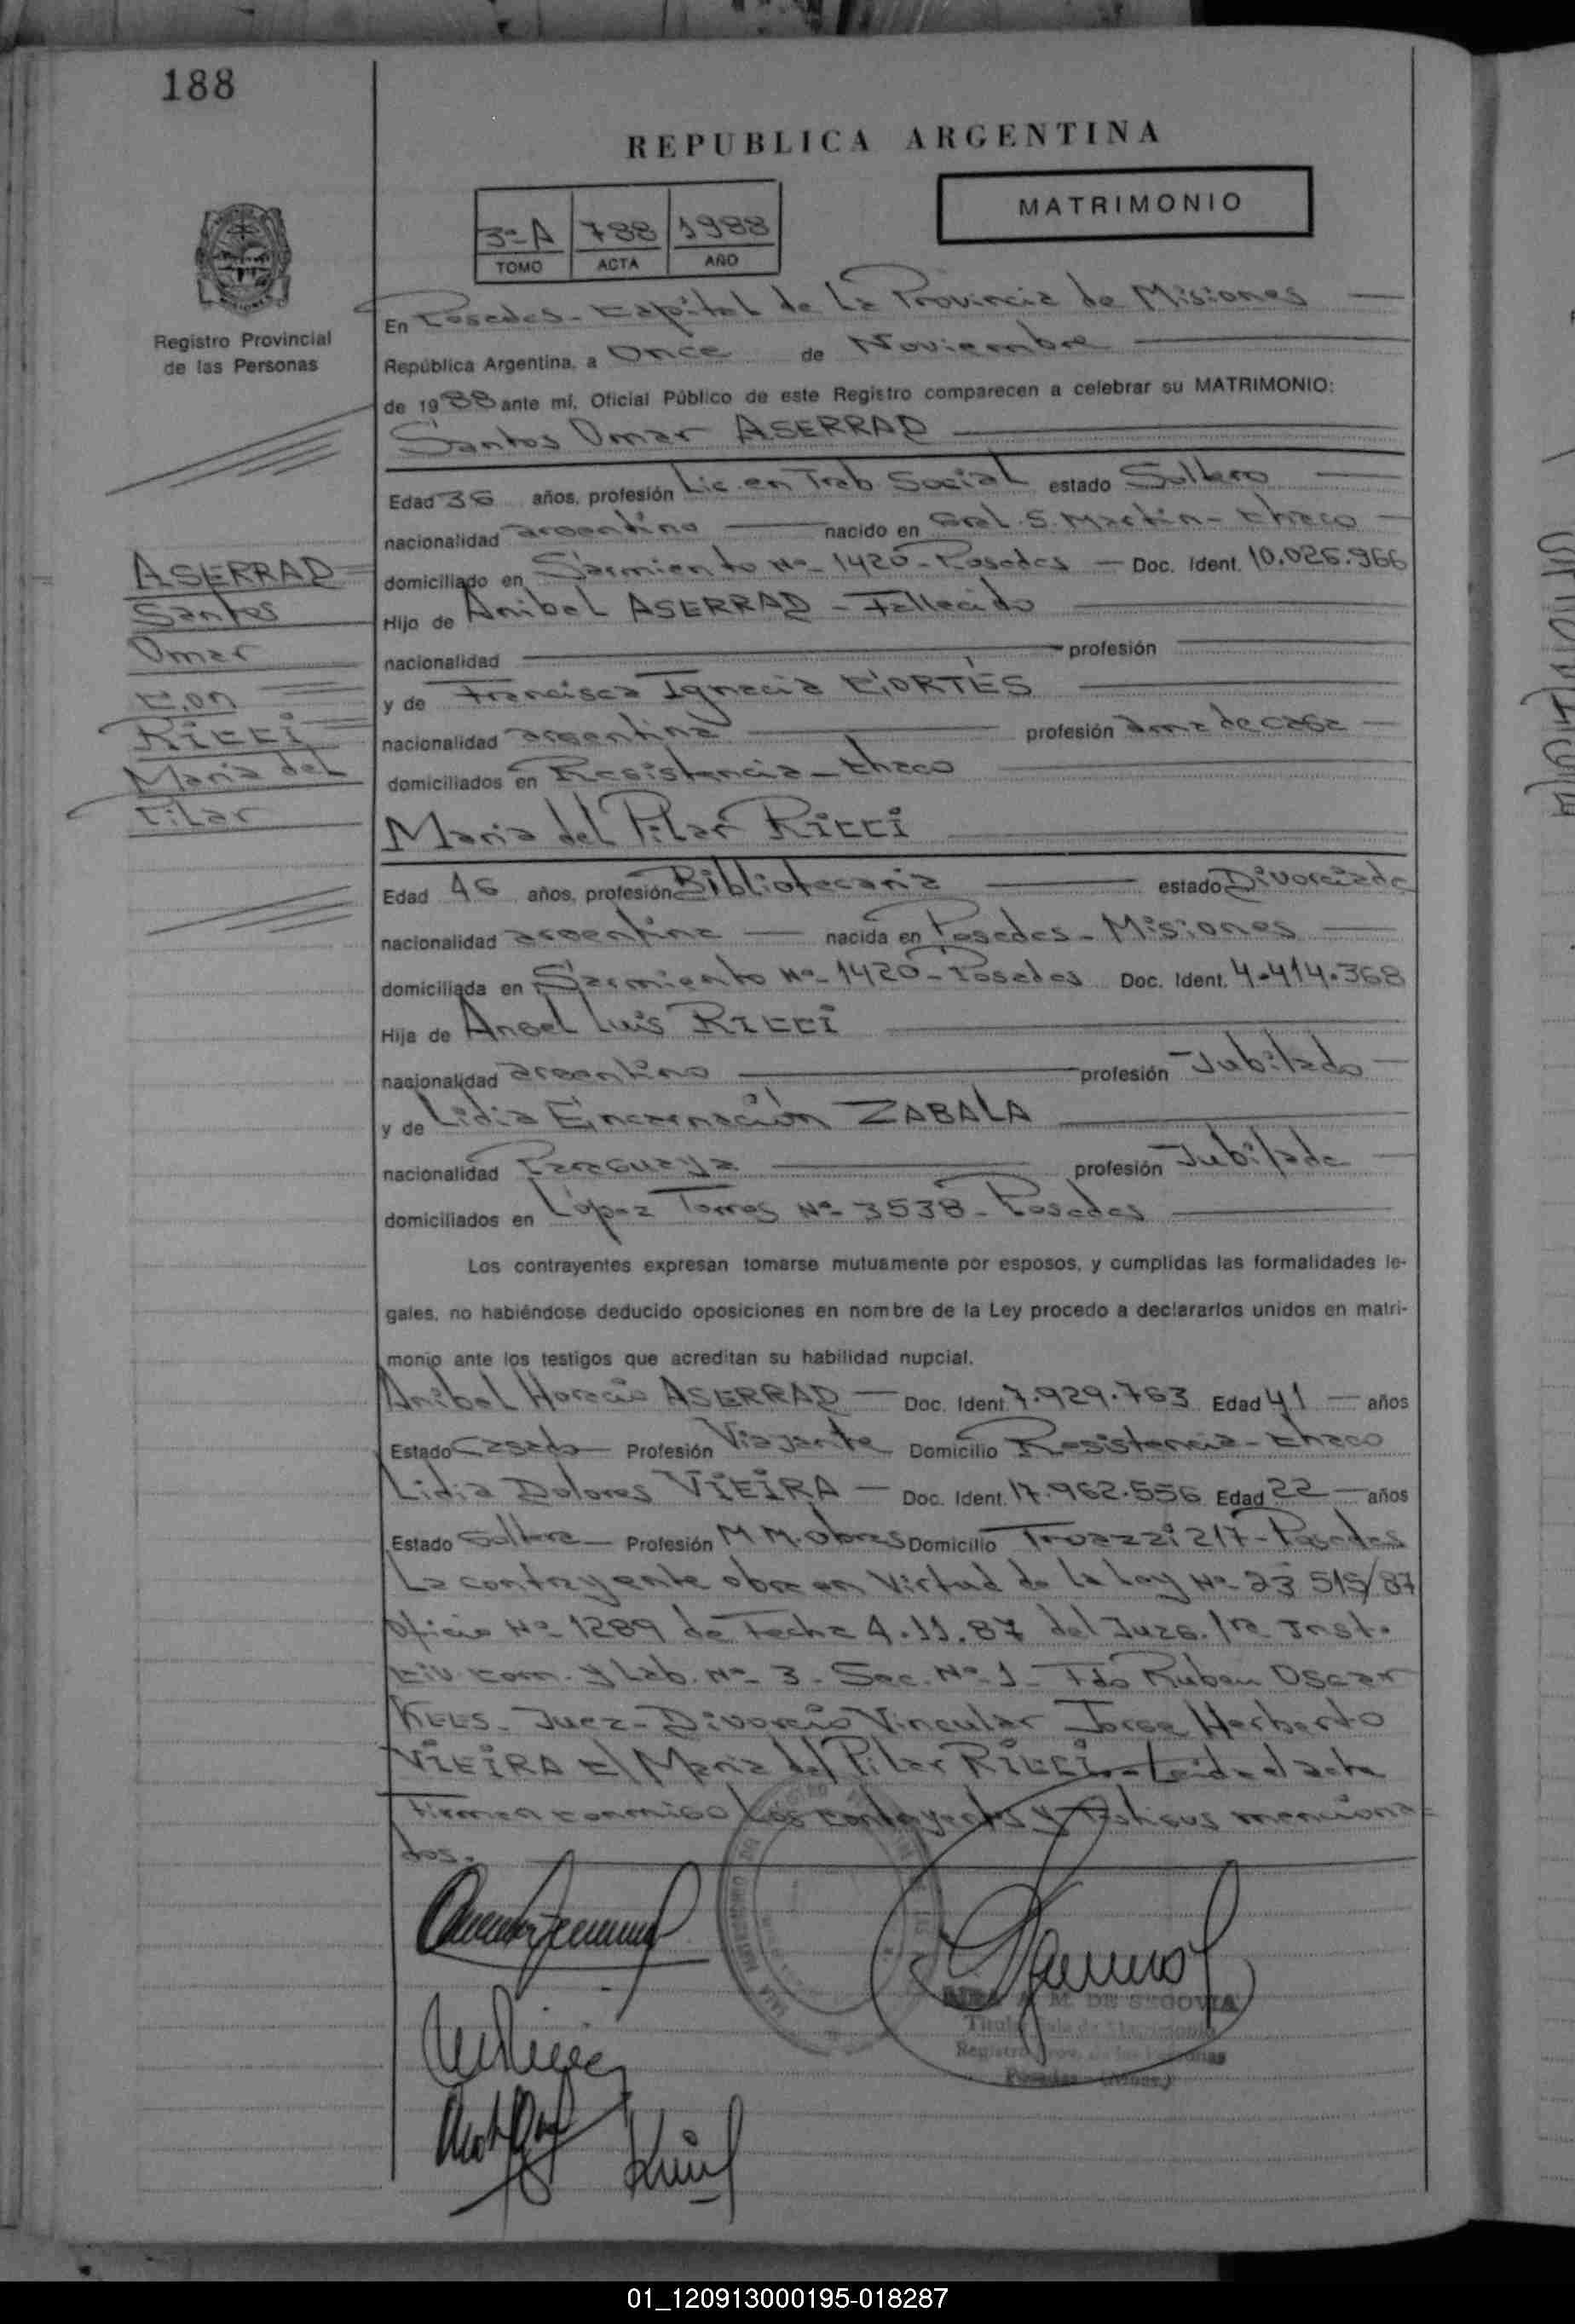 188
REPUBLICA ARGENTINA
MATRIMONIO
3º A 788 1988
TOMO ACTA AÑO
Registro Provincial
de las Personas
En Posadas - Capital de La Provincia de Misiones
República Argentina, a Once de Noviembre
de 1988 ante mí, Oficial Público de este Registro comparecen a celebrar su MATRIMONIO:
Santos Omar ASERRAD
Edad 36 años, profesión Lic. en Trab. Social estado Soltero
nacionalidad argentino nacido en Gral. S. Martín - Chaco
domiciliado en Sarmiento Nº 1420 - Posadas Doc. Ident. 10.026.966
Hijo de Anibal ASERRAD - Fallecido
nacionalidad profesión
y de Francisca Ignacia CORTÉS
nacionalidad argentina profesión ama de casa
domiciliados en Resistencia - Chaco
ASERRAD
Santos
Omar
con
RICCI
María del
Pilar
María del Pilar RICCI
Edad 46 años, profesión Bibliotecaria estado Divorciada
nacionalidad argentina nacida en Posadas - Misiones
domiciliada en Sarmiento Nº 1420 - Posadas Doc. Ident. 4.414.368
Hija de Angel Luis RICCI
nacionalidad argentino profesión Jubilado
y de Lidia Encarnación ZABALA
nacionalidad Paraguaya profesión Jubilada
domiciliados en López Torres Nº 3538 - Posadas
Los contrayentes expresan tomarse mutuamente por esposos, y cumplidas las formalidades le-
gales, no habiéndose deducido oposiciones en nombre de la Ley procedo a declararlos unidos en matri-
monio ante los testigos que acreditan su habilidad nupcial.
Anibal Horacio ASERRAD Doc. Ident. 7.929.763 Edad 41 años
Estado Casado Profesión Viajante Domicilio Resistencia - Chaco
Lidia Dolores VIEIRA Doc. Ident. 17.962.556 Edad 22 años
Estado Soltera Profesión M.M. Obras Domicilio 217 - Posadas
La contrayente obra en Virtud de la Ley Nº 23 515/87
Oficio Nº 1289 de Fecha 4.11.87 del Juzg. 1ra Inst.
Civ. Com. y Lab. Nº 3 - Sec. Nº 1 - Fdo Ruben Oscar
KEES - Juez - Divorcio Vincular Jorge Herberto
VIEIRA C/ María del Pilar RICCI - Leída el acta
Firman conmigo los contrayentes y testigos menciona-
dos.
M. DE SEGOVIA
01_120913000195-018287